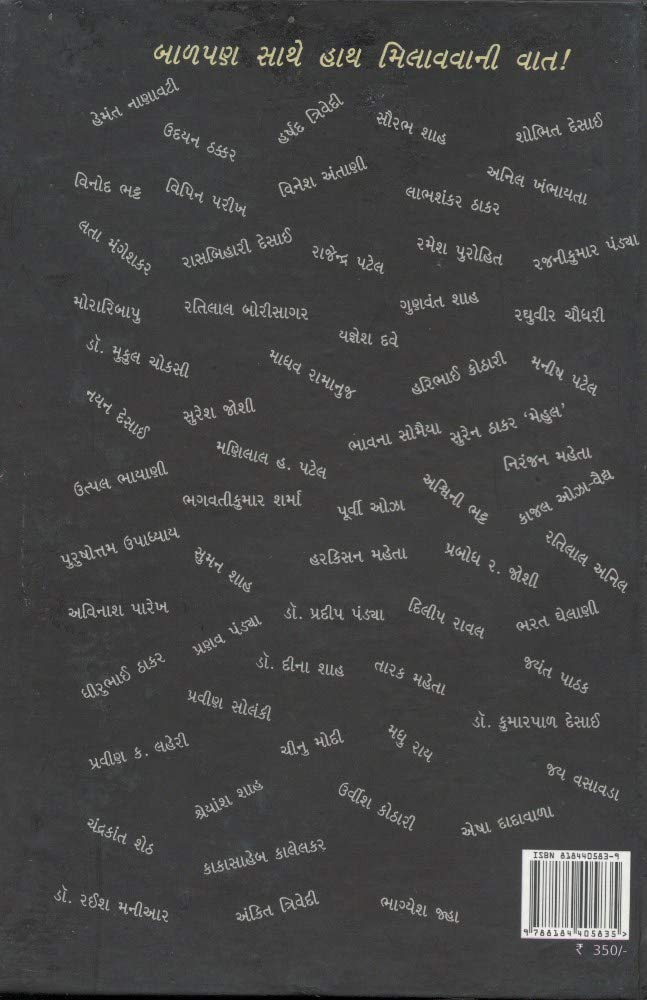 બાળપણ સાથે હાથ મિલાવવાની વાત!
હેમંત નાણાવટી
ઉદયન ઠક્કર
હર્ષદ ત્રિવેદી
સૌરભ શાહ
શોભિત દેસાઈ
વિનોદ ભટ્ટ
વિપિન પરીખ
વિનેશ અંતાણી
લાભશંકર ઠાકર
અનિલ ખંભાયતા
લતા મંગેશકર
રાસબિહારી દેસાઈ
રાજેન્દ્ર પટેલ
રમેશ પુરોહિત
રજનીકુમાર પંડ્યા
મોરારિબાપુ
રતિલાલ બોરીસાગર
યજ્ઞેશ દવે
ગુણવંત શાહ
રઘુવીર ચૌધરી
ડૉ. મુકુલ ચોકસી
માધવ રામાનુજ
હરિભાઈ કોઠારી
મનીષ પટેલ
નયન દેસાઈ
સુરેશ જોશી
મણિલાલ હ. પટેલ
ભાવના સોમૈયા
સુરેન ઠાકર ‘મેહુલ’
નિરંજન મહેતા
ઉત્પલ ભાયાણી
ભગવતીકુમાર શર્મા
પૂર્વી ઓઝા
અશ્વિની ભટ્ટ
કાજલ ઓઝા-વૈદ્ય
પુરુષોત્તમ ઉપાધ્યાય
સુમન શાહ
હરકિસન મહેતા
પ્રબોધ ર. જોશી
રતિલાલ અનિલ
અવિનાશ પારેખ
પ્રણવ પંડ્યા
ડૉ. પ્રદીપ પંડ્યા
દિલીપ રાવલ
ભરત ઘેલાણી
ધીરુભાઈ ઠાકર
ડૉ. દીના શાહ
તારક મહેતા
જયંત પાઠક
પ્રવીણ સોલંકી
ડૉ. કુમારપાળ દેસાઈ
પ્રવીણ ક. લહેરી
ચીનુ મોદી
મધુ રાય
જય વસાવડા
શ્રેયાંશ શાહ
ઉર્વીશ કોઠારી
એષા દાદાવાળા
ચંદ્રકાંત શેઠ
કાકાસાહેબ કાલેલકર
ડૉ. રઈશ મનીઆર
અંકિત ત્રિવેદી
ભાગ્યેશ જ્હા
ISBN 818440583-9
9 788184 405835 >
₹ 350/-